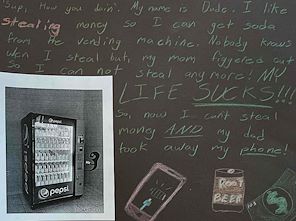 'Sup, How you doin'. My name is Dude. I like
stealing money so I can get soda
from the vending machine. Nobody knows
wen I steal but, my mom figgered out
so I can not steal anymore! MY
LIFE SUCKS!!!
So, now I cant steal
money AND my dad
took away my phone!
pepsi
pepsi
ROOT
BEER